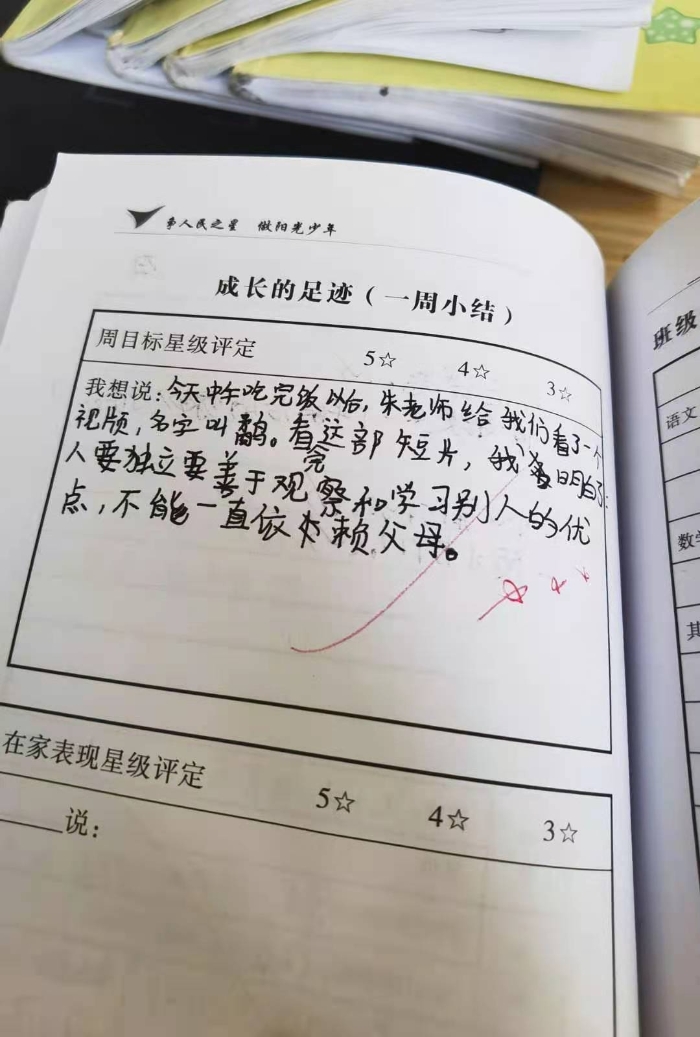 争人民之星 做阳光少年
成长的足迹（一周小结）
周目标星级评定 5☆ 4☆ 3☆
我想说：今天中午吃完饭以后，朱老师给我们看了一个
视频，名字叫鹬。看完这部短片，我明白了：
人要独立要善于观察和学习别人的优
点，不能一直依赖父母。
在家表现星级评定 5☆ 4☆ 3☆
说：
班级
语文
数学
其